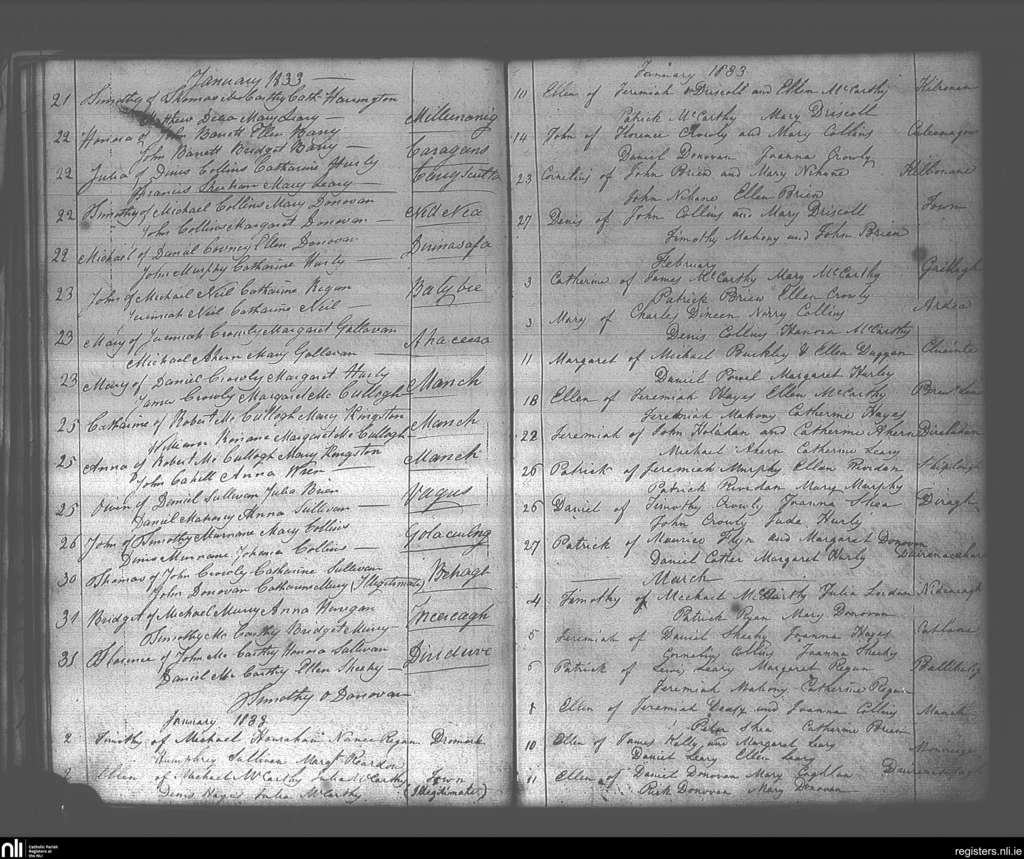 January 1833
21 Timothy of Thomas Mc Carthy Cath. Harrington
Mathew Mary Leary Millenanig
22 Honora of John Barrett Ellen Barry
John Barrett Bridget Barry Caragans
22 Julia of Dinis Collins Catharine Hurly
Francis Mary Leary
22 Timothy of Michael Collins Mary Donovan
John Collins Margaret Donovan Nid Nia
22 Michael of Danial Cowney Ellen Donovan
John Murphy Catharine Hurly Dirinasafa
23 John of Michael Neil Catharine Regan
Jeremiah Neil Catharine Neil Balybue
23 Mary of Jeremiah Crowly Margaret Gallavan
Michael Ahern Mary Gallavan
23 Mary of Daniel Crowly Margaret Hurly
James Crowly Margaret Mc Cullogh Manch
25 Catharine of Robert Mc Cullogh Mary Kingston
William Margaret Mc Cullogh Manch
25 Anna of Robert Mc Cullogh Mary Kingston
John Cahill Anna Manch
25 Owen of Daniel Sullivan Julia Brien
Daniel Mahony Anna Sullivan Vagus
26 John of Timothy Murnane Mary Collins
Dinis Murnane Johanna Collins
30 Thomas of John Crowly Catharine Sullivan
John Donovan Catharine Murry (Illegitimate) Behagh
31 Bridget of Michael Murry Anna Horigan
Timothy Mc Carthy Bridget Murry Inceicagh
31 Florence of John Mc Carthy Honora Sullivan
Daniel Mc Carthy Ellen Sheehy
Timothy O Donovan
January 1833
2 Timothy of Michael Hourahan Nance Regan Dromark
Humphrey Sullivan Margt Reardon
Ellen of Michael McCarthy Julia McCarthy Town
Denis Hayes Julia McCarthy (Illegitimate)
January 1833
10 Ellen of Jeremiah Driscoll and Ellen McCarthy Kilronan
Patrick McCarthy Mary Driscoll
14 John of Florence Crowly and Mary Collins
Daniel Donovan Joanna Crowly
23 Cornelius of John Brien and Mary Nihane Killbonane
John Nihane Ellen Brien
27 Denis of John Collins and Mary Driscoll Town
Timothy Mahony and John Brien
February
3 Catherine of James McCarthy Mary McCarthy Grillagh
Patrick Brien Ellen Crowly
3 Mary of Charles Dineen Norry Collins Ardea
Denis Collins Hanora McCarthy
11 Margaret of Michael Buckley & Ellen Duggan
Daniel Margaret Hurley
18 Ellen of Jeremiah Hayes Ellen McCarthy
Jeremiah Mahony Catherine Hayes
22 Jeremiah of John Holahan and Catherine Ahern
Michael Ahern Catherine Leary
26 Patrick of Jeremiah Murphy Ellen Rindan
Patrick Rindan Mary Murphy
26 Daniel of Timothy Crowly Joanna Shea Diragh
John Crowly Jude Hurly
27 Patrick of Maurice Flyn and Margaret Donovan
Daniel Cotter Margaret Hurly
March
4 Timothy of Michael McCarthy Julia
Patrick Ryan Mary Donovan
5 Jeremiah of Daniel Sheehy Joanna Hayes
Cornelius Collins Joanna Sheehy
6 Patrick of Lewis Leary Margaret Regan
Jeremiah Mahony Catherine Regan
8 Ellen of Jeremiah and Joanna Collins Manch
Peter Shea Catherine Brien
10 Ellen of James Kelly and Margaret Leary
Daniel Leary Ellen Leary
11 Ellen of Daniel Donovan Mary Coghlan
Rick Donovan Mary Donovan
nli
Catholic Parish Registers at the NLI
registers.nli.ie